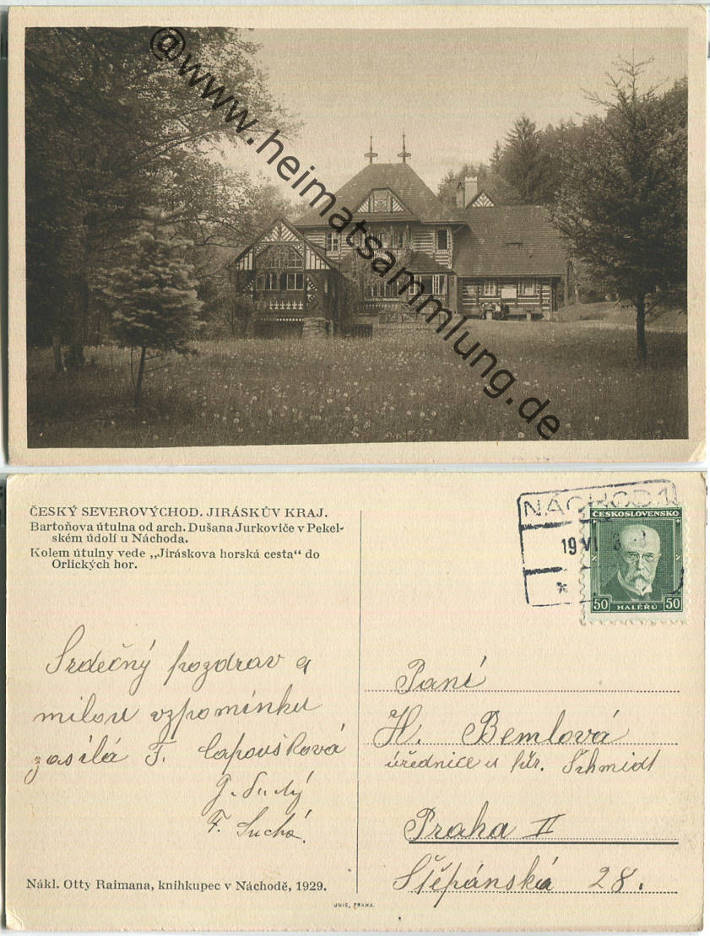 @www.heimatsammlung.de
ČESKÝ SEVEROVÝCHOD. JIRÁSKŮV KRAJ.
Bartoňova útulna od arch. Dušana Jurkoviče v Pekel-
ském údolí u Náchoda.
Kolem útulny vede „Jiráskova horská cesta" do
Orlických hor.
NÁCHOD 1
19 VI
*
ČESKOSLOVENSKO
50 HALÉŘŮ 50
Srdečný pozdrav a
milou vzpomínku
zasílá F. Capoušková
J. Suchý
F. Suchá.
Paní
H. Bemlová
úřednice u Schmidt
Praha II
Štěpánská 28.
Nákl. Otty Raimana, knihkupec v Náchodě, 1929.
UNIE, PRAHA.